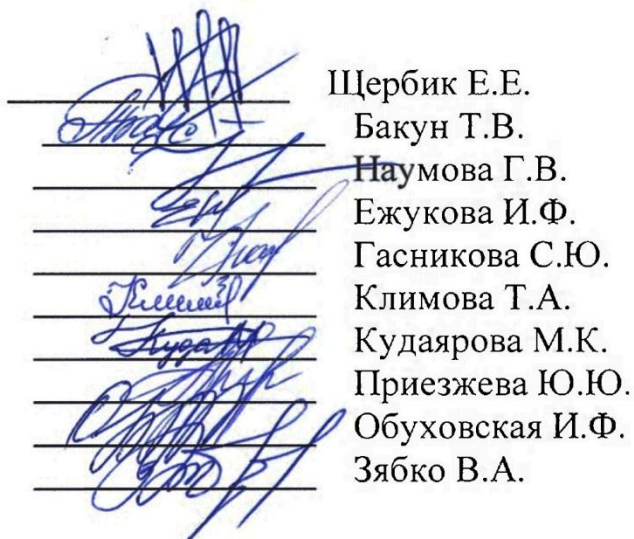 Щербик Е.Е.
Бакун Т.В.
Наумова Г.В.
Ежукова И.Ф.
Гасникова С.Ю.
Климова Т.А.
Кудаярова М.К.
Приезжева Ю.Ю.
Обуховская И.Ф.
Зябко В.А.